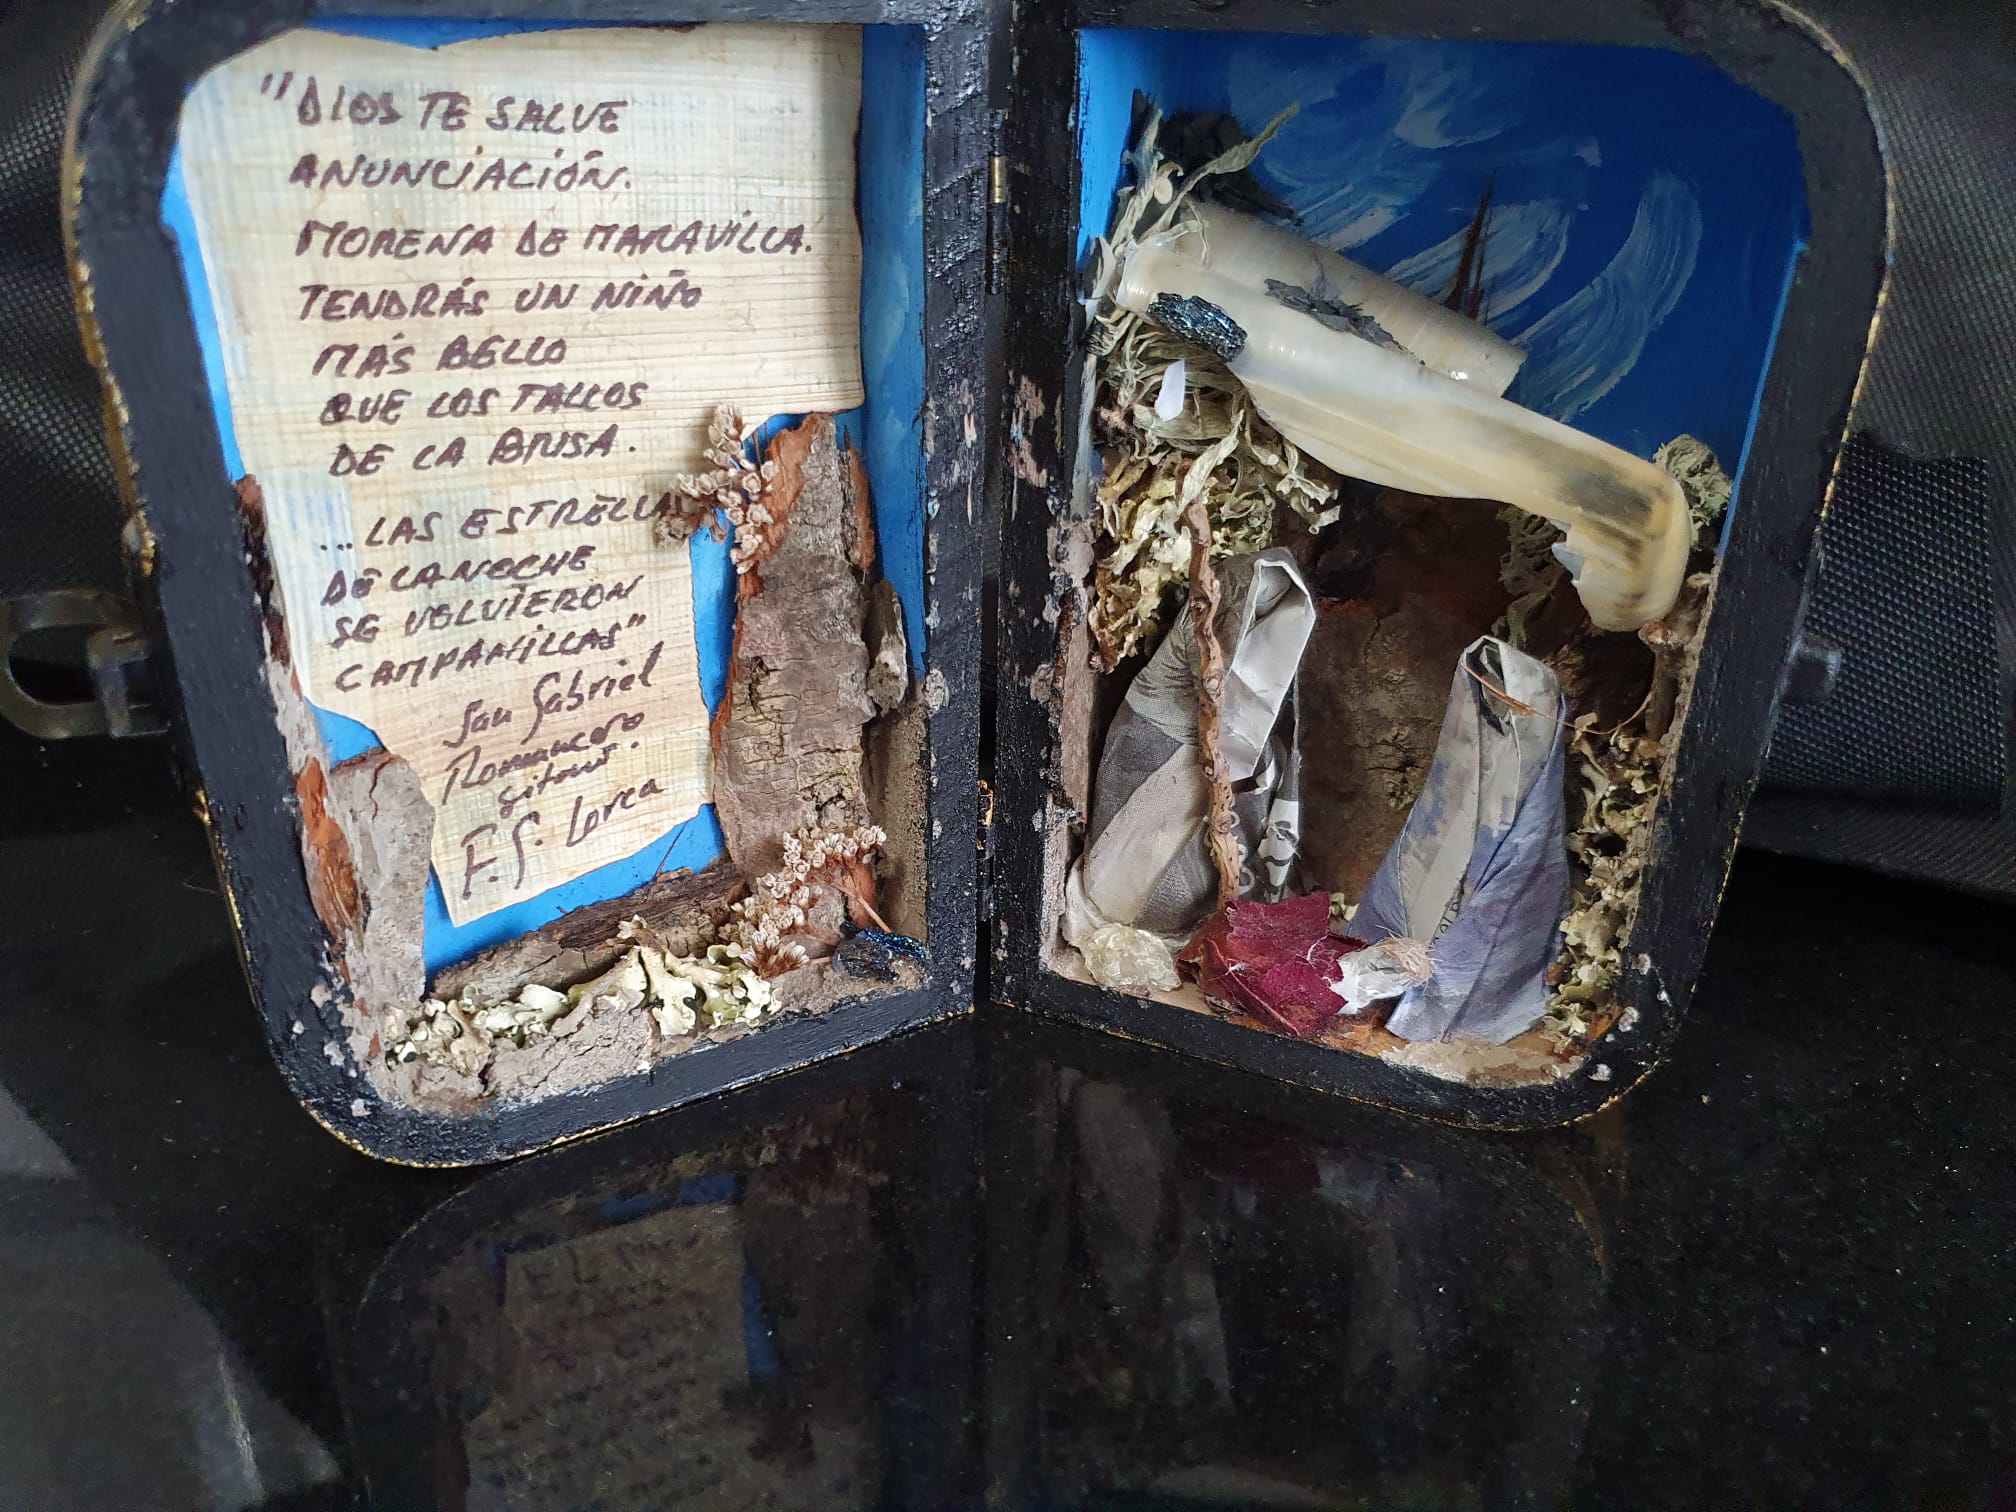 "DIOS TE SALVE
ANUNCIACIÓN.
MORENA DE MARAVILLA.
TENDRÁS UN NIÑO
MÁS BELLO
QUE LOS TALLOS
DE LA BRISA.
...LAS ESTRELLAS
DE LA NOCHE
SE VOLVIERON
CAMPANILLAS"
San Gabriel
Romancero
gitano.
F. G. Lorca